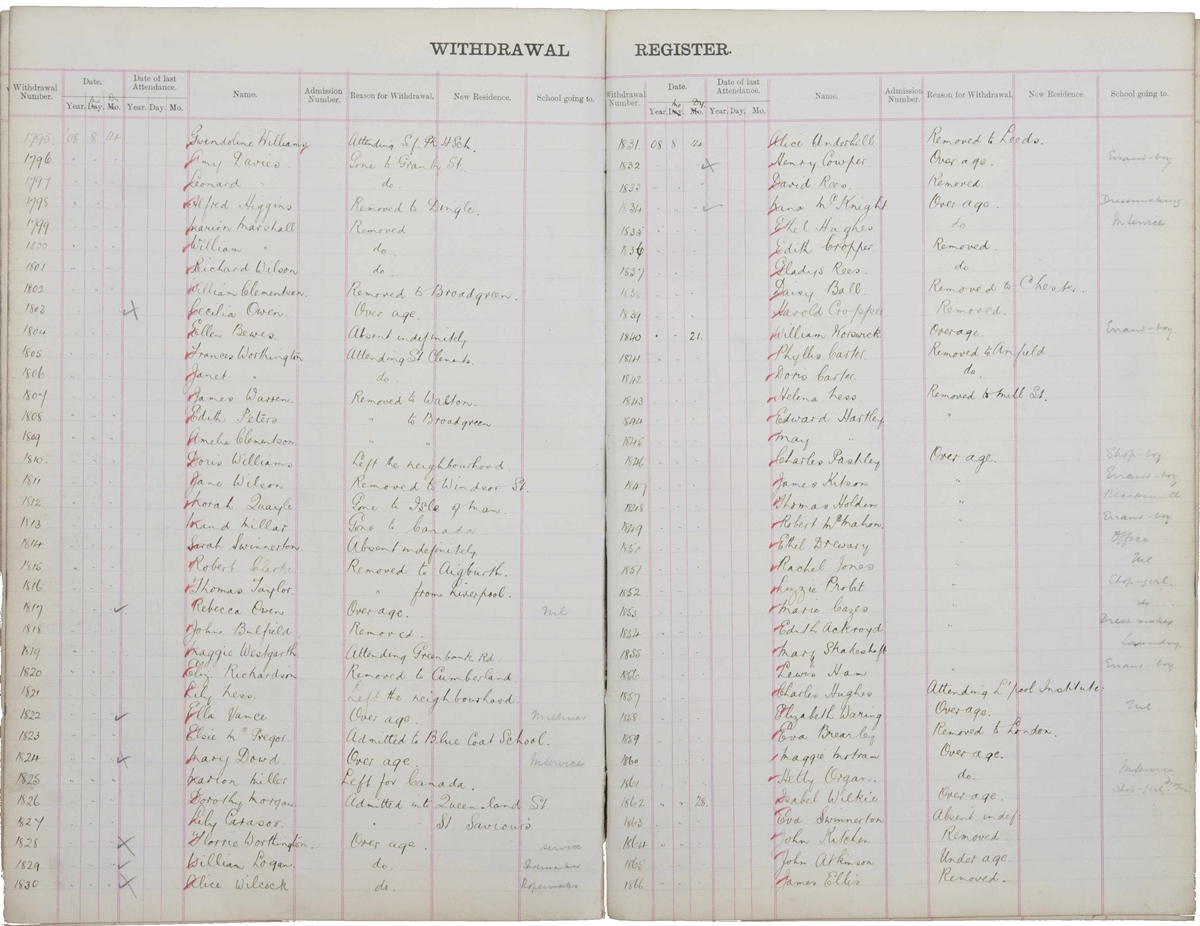 WITHDRAWAL
Withdrawal Number. Date. Date of last Attendance. Name. Admission Number. Reason for Withdrawal. New Residence. School going to.
Year. Day. Mo. Year. Day. Mo.
1795 '08 8 14 Gwendoline Williams Attending Sef. Pk. H. Sch.
1796 Amy Davies Gone to Granby St.
1797 Leonard " do.
1798 Alfred Higgins Removed to Dingle.
1799 Marion Marshall Removed
1800 William " do.
1801 Richard Wilson do.
1802 William Clementson. Removed to Broadgreen.
1803 Cecilia Owen Over age.
1804 Ellen Bewes Absent indefinitely
1805 Frances Worthington Attending St Clements.
1806 Janet " do.
1807 James Warren. Removed to Walton.
1808 Edith Peters " to Broadgreen
1809 Amelia Clementson " "
1810 Doris Williams Left the neighbourhood
1811 Jane Wilson Removed to Windsor St.
1812 Norah Quayle Gone to Isle of Man.
1813 Maud Millar Gone to Canada
1814 Sarah Swinnerton Absent indefinitely
1815 Robert Removed to Aigburth.
1816 Thomas Taylor. " from Liverpool.
1817 Rebecca Owen Over age. Nil
1818 John Bulfield Removed.
1819 Maggie Westgarth Attending Greenbank Rd.
1820 Eliz. Richardson Removed to Cumberland
1821 Lily Ness. Left the neighbourhood.
1822 Ella Vance Over age. Milliner
1823 Elsie McGregor. Admitted to Blue Coat School.
1824 Mary Dowd Over age. In service
1825 Marion Miller Left for Canada.
1826 Dorothy Morgan Admitted int Queensland St.
1827 Lily Carasov. " St Saviour's
1828 Florrie Worthington. Over age. service
1829 William Logan do.
1830 Alice Wilcock do. Ropeworks
REGISTER.
Withdrawal Number. Date. Date of last Attendance. Name. Admission Number. Reason for Withdrawal. New Residence. School going to.
Year. Day. Mo. Year. Day. Mo.
1831. 08 8 14. Alice Underhill Removed to Leeds.
1832 Henry Cowper Over age. Errand-boy
1833 David Rees. Removed
1834 Nana McKnight Over age. Dressmaking
1835 Ethel Hughes do In service
1836 Edith Cropper Removed.
1837 Gladys Rees. do
1838 Daisy Ball. Removed to Chester.
1839 Harold Cropper Removed.
1840 " " 21. William Worswick Over age. Errand-boy.
1841 Phyllis Carter. Removed to Anfield
1842 Doris Carter. do.
1843 Helena Ness. Removed to Mill St.
1844 Edward Hartley "
1845 May "
1846 Charles Pashley Over age. Shop-boy
1847 James Kitson " Errand-boy
1848 Thomas Holden " Blacksmith
1849 Robert McMahon " Errand-boy
1850 Ethel Drewary " Office
1851 Rachel Jones " Nil
1852 Lizzie Probit " Shop-girl.
1853 Marie Cazes " do
1854 Edith Ackroyd " Dressmaker
1855 Mary Shakeshaft Laundry
1856 Lewis Ham " Errand-boy
1857 Charles Hughes Attending L'pool Institute.
1858 Elizabeth Waring Over age. Nil
1859 Eva Brearley Removed to London.
1860 Maggie Motram Over age.
1861 Hetty Organ. do. In service
1862 " " 28. Isabel Wilkie Over age. Shop-girl
1863 Eva Swinnerton Absent indef.
1864 John Kitchen Removed
1865 John Atkinson Under age.
1866 James Ellis Removed.